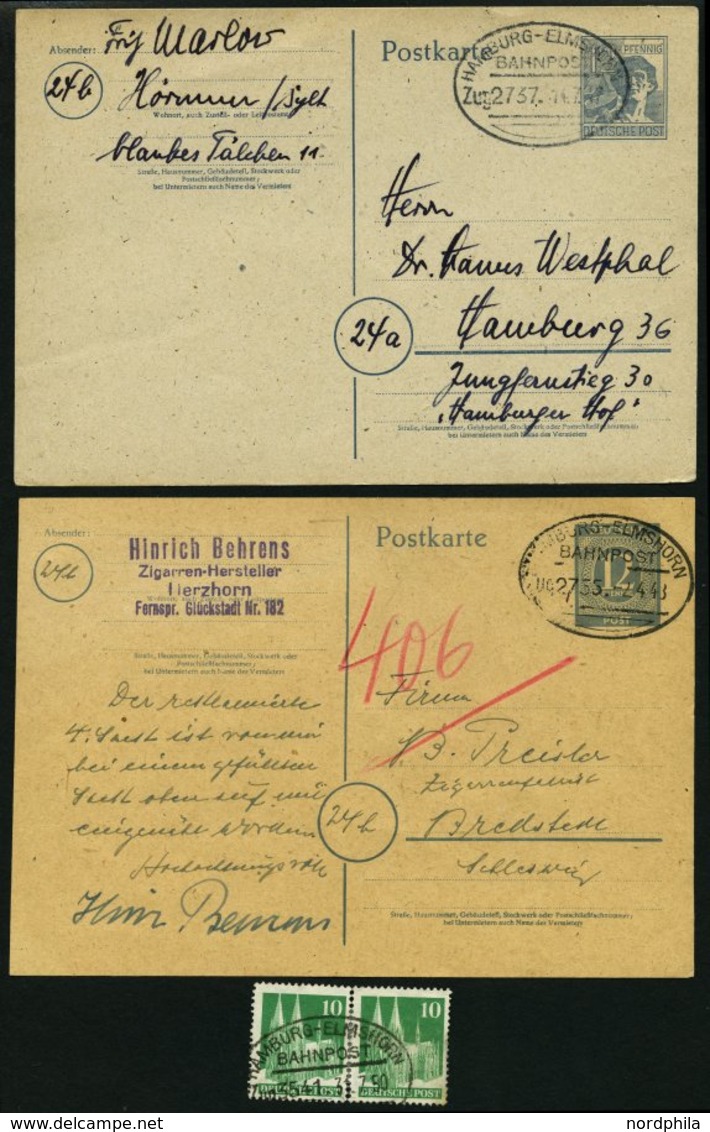 Absender: Fritz Marlow
24b
Hörnum / Sylt
Wohnort, auch Zustell- oder Leitpostamt
blankes Tälchen 11
Straße, Hausnummer, Gebäudeteil, Stockwerk oder
Postschließfachnummer;
bei Untermietern auch Name des Vermieters
Postkarte
HAMBURG-ELMSHORN
BAHNPOST
Zug 2737
PFENNIG
DEUTSCHE POST
Herrn
Dr. Hanns Westphal
24a
Hamburg 36
Jungfernstieg 30
"Hamburger Hof"
Straße, Hausnummer, Gebäudeteil, Stockwerk oder Postschließfachnummer;
bei Untermietern auch Name des Vermieters
Absender:
24b
Hinrich Behrens
Zigarren-Hersteller
Herzhorn
Fernspr. Glückstadt Nr. 182
Straße, Hausnummer, Gebäudeteil, Stockwerk oder
Postschließfachnummer;
bei Untermietern auch Name des Vermieters
Postkarte
HAMBURG-ELMSHORN
BAHNPOST
12
POST
406
Der reklamierte
4. Sack ist von mir
bei einem gefüllten
Sack oben auf mit
eingenäht worden.
Hochachtungsvoll
Hinr Behrens
Firma
Preisler
24b
Bredstedt
Schleswig
Straße, Hausnummer, Gebäudeteil, Stockwerk oder Postschließfachnummer;
bei Untermietern auch Name des Vermieters
10 10
HAMBURG-ELMSHORN
BAHNPOST
DEUTSCHE POST DEUTSCHE POST
nordphila